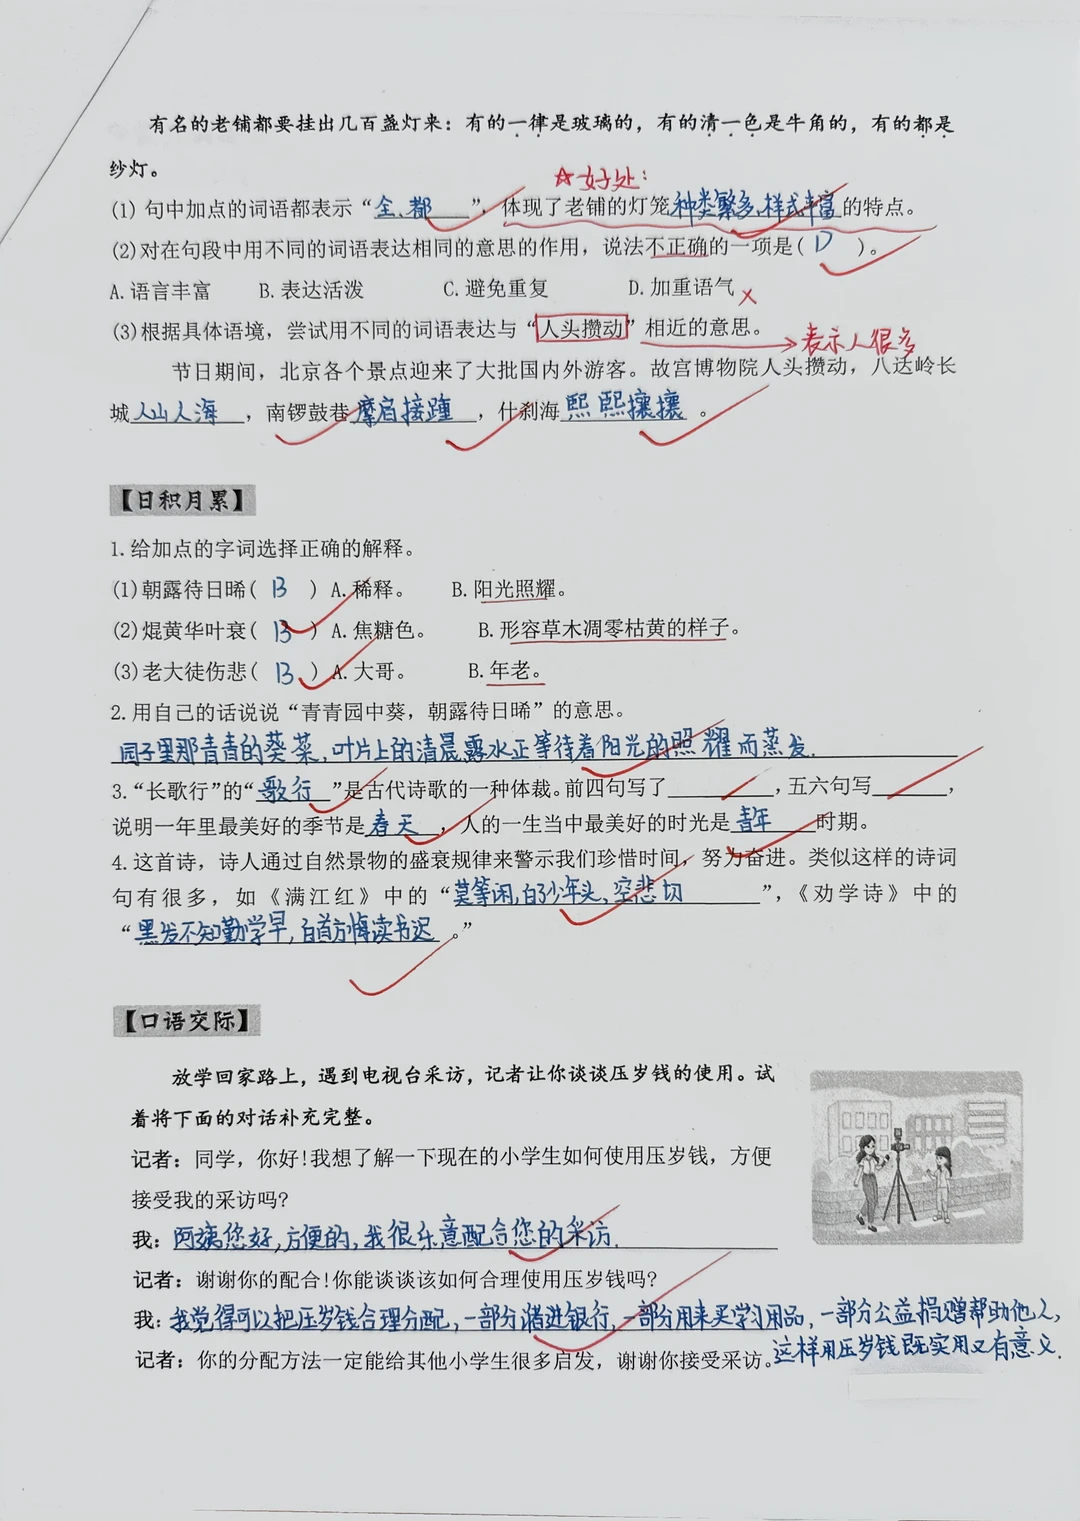 有名的老铺都要挂出几百盏灯来：有的一律是玻璃的，有的清一色是牛角的，有的都是
纱灯。
☆好处：
(1) 句中加点的词语都表示“全、都”，体现了老铺的灯笼种类繁多,样式丰富的特点。
(2)对在句段中用不同的词语表达相同的意思的作用，说法不正确的一项是( D )。
A.语言丰富 B.表达活泼 C.避免重复 D.加重语气 ×
(3)根据具体语境，尝试用不同的词语表达与“人头攒动”相近的意思。 表示人很多
节日期间，北京各个景点迎来了大批国内外游客。故宫博物院人头攒动，八达岭长
城人山人海，南锣鼓巷摩肩接踵，什刹海熙熙攘攘。
【日积月累】
1.给加点的字词选择正确的解释。
(1)朝露待日晞( B ) A.稀释。 B.阳光照耀。
(2)焜黄华叶衰( B ) A.焦糖色。 B.形容草木凋零枯黄的样子。
(3)老大徒伤悲( B ) A.大哥。 B.年老。
2.用自己的话说说“青青园中葵，朝露待日晞”的意思。
园子里那青青的葵菜,叶片上的清晨露水正等待着阳光的照耀而蒸发.
3.“长歌行”的“歌行”是古代诗歌的一种体裁。前四句写了________，五六句写________，
说明一年里最美好的季节是春天，人的一生当中最美好的时光是青年时期。
4.这首诗，诗人通过自然景物的盛衰规律来警示我们珍惜时间，努力奋进。类似这样的诗词
句有很多，如《满江红》中的“莫等闲,白了少年头,空悲切”，《劝学诗》中的
“黑发不知勤学早,白首方悔读书迟。”
【口语交际】
放学回家路上，遇到电视台采访，记者让你谈谈压岁钱的使用。试
着将下面的对话补充完整。
记者：同学，你好！我想了解一下现在的小学生如何使用压岁钱，方便
接受我的采访吗？
我：阿姨您好,方便的,我很乐意配合您的采访.
记者：谢谢你的配合！你能谈谈该如何合理使用压岁钱吗？
我：我觉得可以把压岁钱合理分配,一部分储进银行,一部分用来买学习用品,一部分公益捐赠帮助他人,
这样用压岁钱既实用又有意义.
记者：你的分配方法一定能给其他小学生很多启发，谢谢你接受采访。